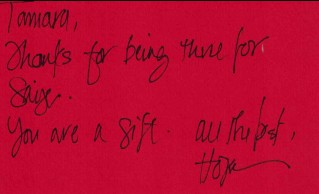 Tamara,
Thanks for being there for
Saige.
You are a gift. all the best,